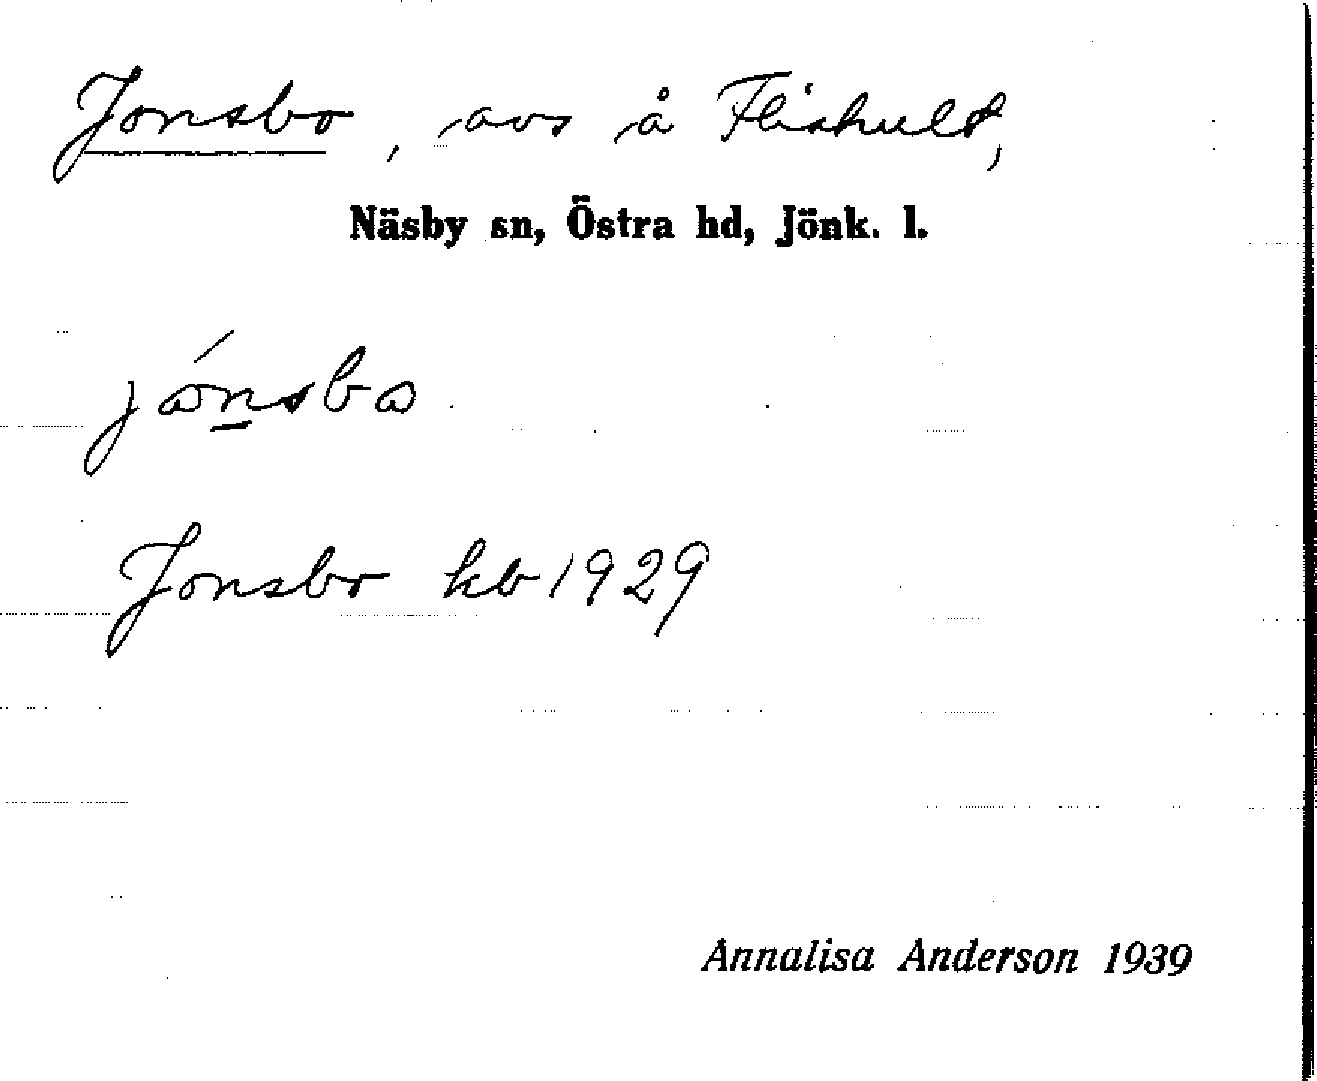 Jonsbo, avs å Flishult,
Näsby sn, Östra hd, Jönk. l.
Jonsbo kb 1929
Annalisa Anderson 1939